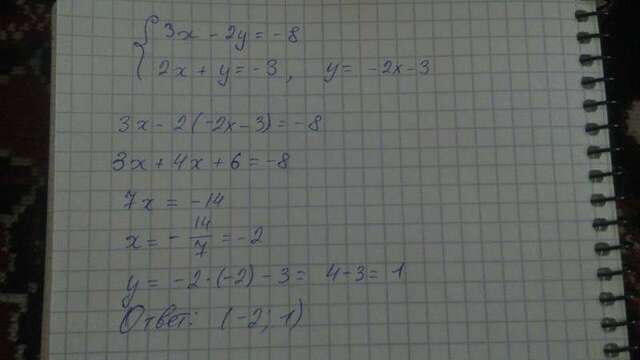 { 3x - 2y = -8
2x + y = -3, y = -2x-3
3x - 2(-2x-3) = -8
3x + 4x + 6 = -8
7x = -14
x = - 14/7 = -2
y = -2·(-2) - 3 = 4-3 = 1
Ответ: (-2; 1)